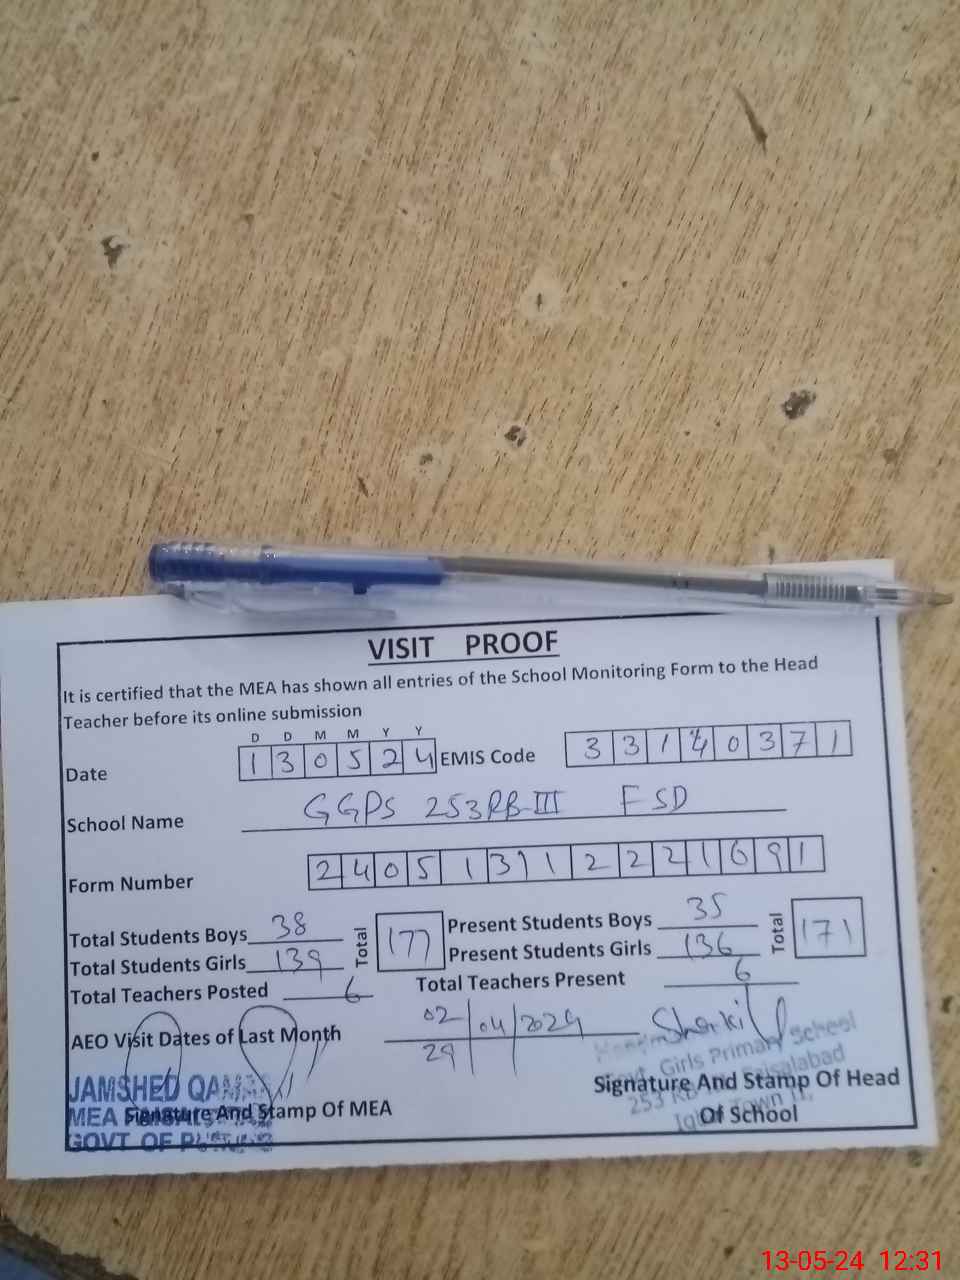 VISIT PROOF
It is certified that the MEA has shown all entries of the School Monitoring Form to the Head
Teacher before its online submission
D D M M Y Y
Date 1 3 0 5 2 4 EMIS Code 3 3 1 4 0 3 7 1
School Name GGPS 253RB-III FSD
Form Number 2 4 0 5 1 3 1 2 2 2 1 6 9 1
Total Students Boys 38 Total 177 Present Students Boys 35 Total 171
Total Students Girls 139 Present Students Girls 136
Total Teachers Posted 6 Total Teachers Present 6
AEO Visit Dates of Last Month 02/04/2024
29
JAMSHED
MEA
GOVT OF
Signature And Stamp Of MEA
Girls Primary School
253 Faisalabad
Town
Signature And Stamp Of Head
Of School
13-05-24 12:31